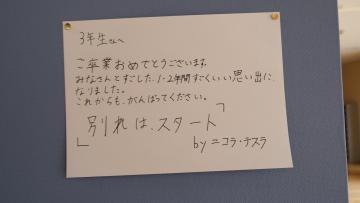 3年生さんへ
ご卒業おめでとうございます。
みなさんとすごした、1・2年間すごくいい思い出に、
なりました。
これからも、がんばってください。
「別れは、スタート」
by ニコラ・テスラ